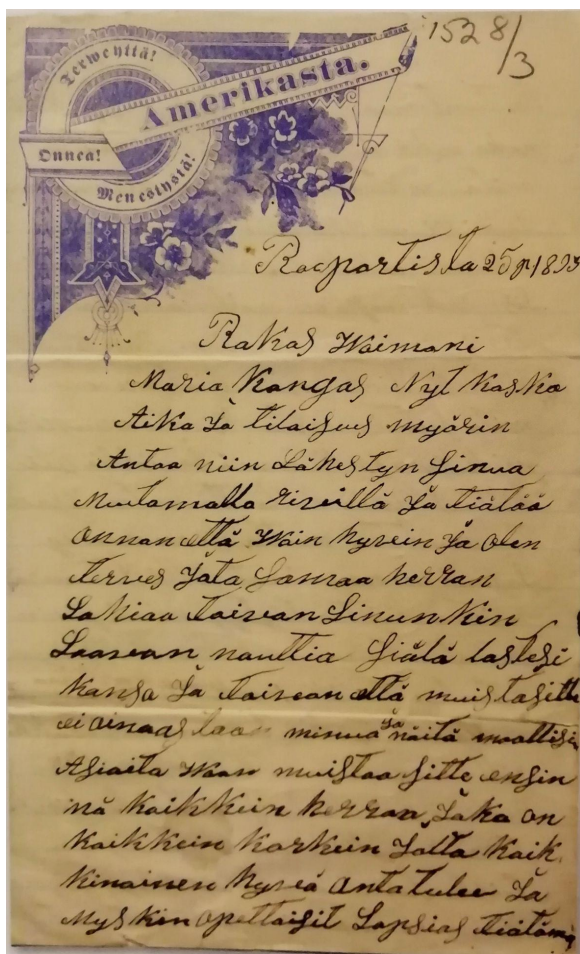 1528/3
Terweyttä!
Amerikasta.
Onnea!
Menestystä!
Rakas Waimoni
Maria Kangas Nyt Koska
Aika Ja tilaisus myörin
Antaa niin Lähestyn Sinua
Muutamalla rivillä Ja tiätää
annan että Woin hyvin Ja olen
terves Jota Samaa herran
Lahiaa toivon Sinunkin
Saavan nauttia Siälä lastesi
Kansa Ja toivon että muistasitte
ei ainoastaan minua Ja näitä maallisia
Asioita Waan muistaa Sitte ensin
nä Kaikkein herraa Joka on
Kaikkein Korkein Jolta Kaik
kinainen hyvä Anto tulee Ja
Myskin opettaisit Lapsias tiätämä